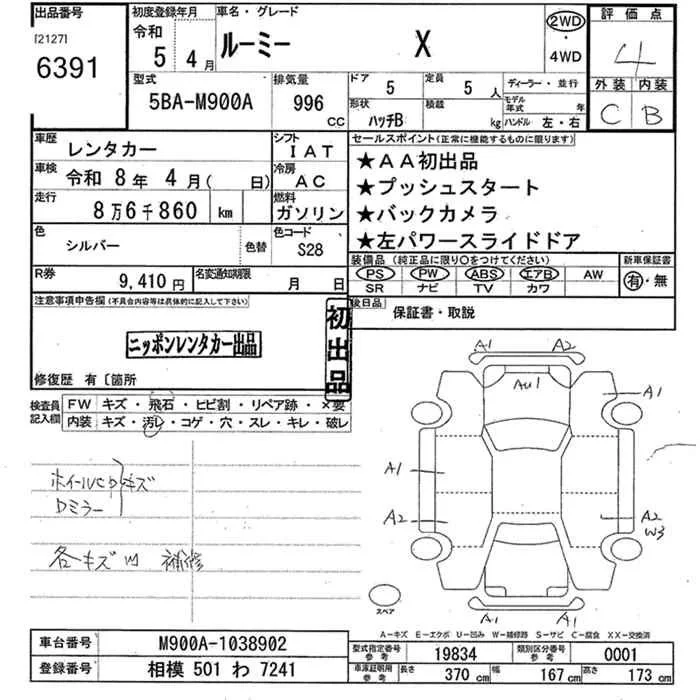 出品番号
[2127]
6391
初度登録年月
令和
5 4 月
車名・グレード
ルーミー X
2WD
・
4WD
評価点
4
外装 内装
C B
型式
5BA-M900A
排気量
996 CC
ドア
5
定員
5 人
形状
ハッチB
積載
kg
ディーラー・並行
モデル年式 年
ハンドル 左・右
車歴
レンタカー
シフト
IAT
車検
令和 8年 4月( 日)
冷房
AC
走行
8万6千860 km
燃料
ガソリン
色
シルバー
色替
色コード
S28
R券
9,410円
名変通知期限
月 日
セールスポイント(正常に機能するものに限ります)
★AA初出品
★プッシュスタート
★バックカメラ
★左パワースライドドア
装備品(純正品に限り○をつけてください)
PS PW ABS エアB AW
SR ナビ TV カワ
新車保証書
有・無
後日品
保証書・取説
注意事項申告欄(不具合内容等は具体的に記入して下さい)
ニッポンレンタカー出品
初出品
修復歴 有〔箇所
検査員記入欄
FW キズ・飛石・ヒビ割・リペア跡・×要
内装 キズ・汚レ・コゲ・穴・スレ・キレ・破レ
キズ
Dミラー
各キズ 補修
A1 A2
Au1
A1
A1
A2
A2
W3
A1 A1
スペア
A-キズ E-エクボ U-凹み W-補修跡 S-サビ C-腐食 XX-交換済
車台番号
M900A-1038902
登録番号
相模 501 わ 7241
型式指定番号
参考
19834
類別区分番号
参考
0001
車庫証明用
参考
長さ 370 cm 幅 167 cm 高さ 173 cm